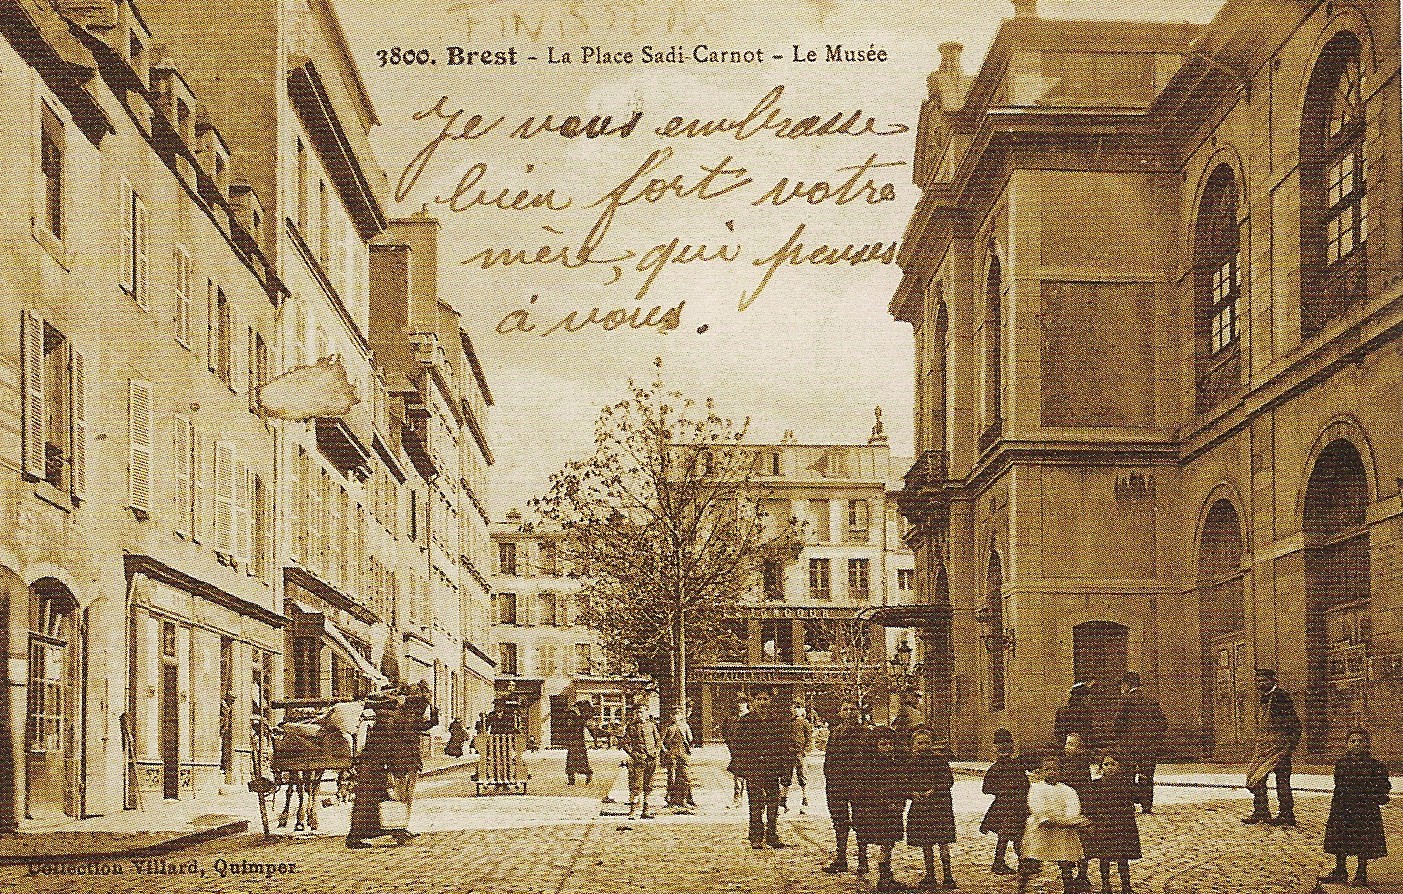 FINISTÈRE
3800. Brest - La Place Sadi-Carnot - Le Musée
Je vous embrasse
bien fort votre
mère, qui penses
à vous.
Collection Villard, Quimper